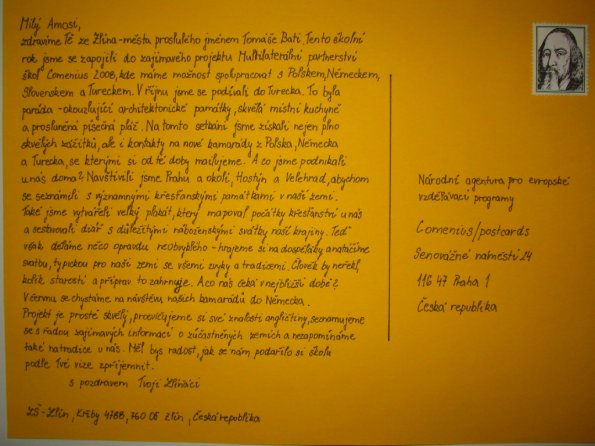 Milý Amosi,
zdravíme Tě ze Zlína-města proslulého jménem Tomáše Bati. Tento školní
rok jsme se zapojili do zajímavého projektu Multilaterální partnerství
škol Comenius 2008, kde máme možnost spolupracovat s Polskem, Německem,
Slovenskem a Tureckem. V říjnu jsme se podívali do Turecka. To byla
paráda - okouzlující architektonické památky, skvělá místní kuchyně
a prosluněná písečná pláž. Na tomto setkání jsme získali nejen plno
skvělých zážitků, ale i kontakty na nové kamarády z Polska, Německa
a Turecka, se kterými si od té doby mailujeme. A co jsme podnikali
u nás doma? Navštívili jsme Prahu a okolí, Hostýn a Velehrad, abychom
se seznámili s významnými křesťanskými památkami v naší zemi.
Také jsme vytvářeli velký plakát, který mapoval počátky křesťanství u nás
a sestavovali diář s důležitými náboženskými svátky naší krajiny. Teď
však děláme něco opravdu neobvyklého - hrajeme si na dospěláky a natáčíme
svatbu, typickou pro naši zemi se všemi zvyky a tradicemi. Člověk by neřekl,
kolik starostí a příprav to zahrnuje. A co nás čeká v nejbližší době?
V červnu se chystáme na návštěvu našich kamarádů do Německa.
Projekt je prostě skvělý, procvičujeme si své znalosti angličtiny, seznamujeme
se s řadou zajímavých informací o zúčastněných zemích a nezapomínáme
také na tradice u nás. Měl bys radost, jak se nám podařilo si školu
podle Tvé vize zpříjemnit.
s pozdravem Tvoji Zlíňáci
ZŠ - Zlín, Křiby 4788, 760 05 Zlín, Česká republika
Národní agentura pro evropské
vzdělávací programy
Comenius/postcards
Senovážné náměstí 24
116 47 Praha 1
Česká republika